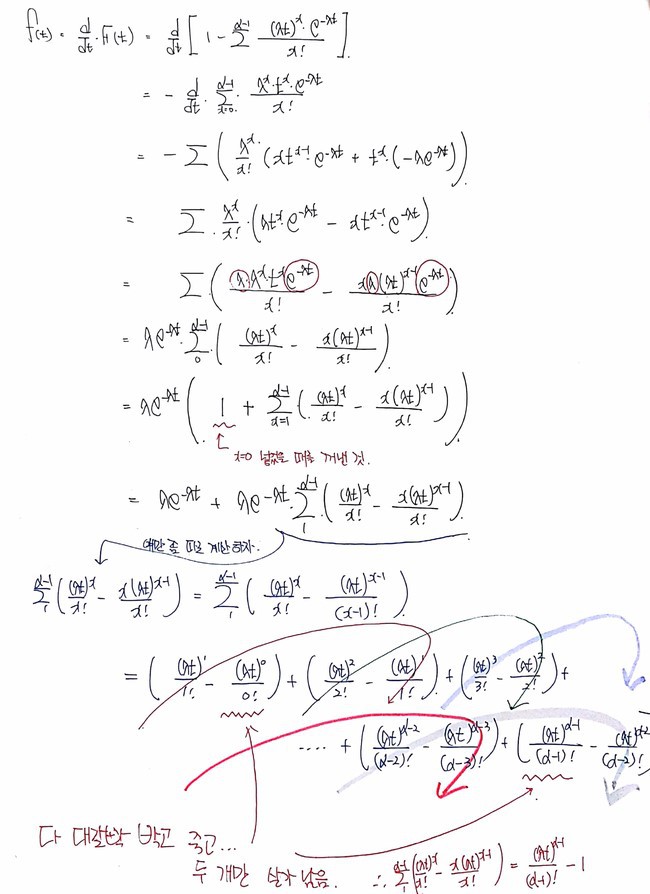 f(t) = d/dt F(t) = d/dt [ 1 - Σ^{α-1} (λt)^x · e^{-λt} / x! ]
= - d/dt Σ_{x=0}^{α-1} λ^x · t^x · e^{-λt} / x!
= - Σ ( λ^x / x! · ( x t^{x-1} e^{-λt} + t^x · (-λe^{-λt}) ) )
= Σ λ^x / x! · ( λt^x · e^{-λt} - x t^{x-1} · e^{-λt} )
= Σ ( λ · λ^x · t^x e^{-λt} / x! - xλ(λt)^{x-1} e^{-λt} / x! )
= λe^{-λt} · Σ_0^{α-1} ( (λt)^x / x! - x(λt)^{x-1} / x! )
= λe^{-λt} ( 1 + Σ_{x=1}^{α-1} ( (λt)^x / x! - x(λt)^{x-1} / x! ) )
x=0 넣었을 때를 꺼낸 것.
= λe^{-λt} + λe^{-λt} · Σ_1^{α-1} ( (λt)^x / x! - x(λt)^{x-1} / x! )
얘만 좀 따로 계산하자.
Σ_1^{α-1} ( (λt)^x / x! - x(λt)^{x-1} / x! ) = Σ_1^{α-1} ( (λt)^x / x! - (λt)^{x-1} / (x-1)! )
= ( (λt)^1 / 1! - (λt)^0 / 0! ) + ( (λt)^2 / 2! - (λt)^1 / 1! ) + ( (λt)^3 / 3! - (λt)^2 / 2! ) +
.... + ( (λt)^{α-2} / (α-2)! - (λt)^{α-3} / (α-3)! ) + ( (λt)^{α-1} / (α-1)! - (λt)^{α-2} / (α-2)!
다 대갈박 박고 죽고...
두 개만 살아 남음. ∴ Σ_1^{α-1} ( (λt)^x / x! - x(λt)^{x-1} / x! ) = (λt)^{α-1} / (α-1)! - 1